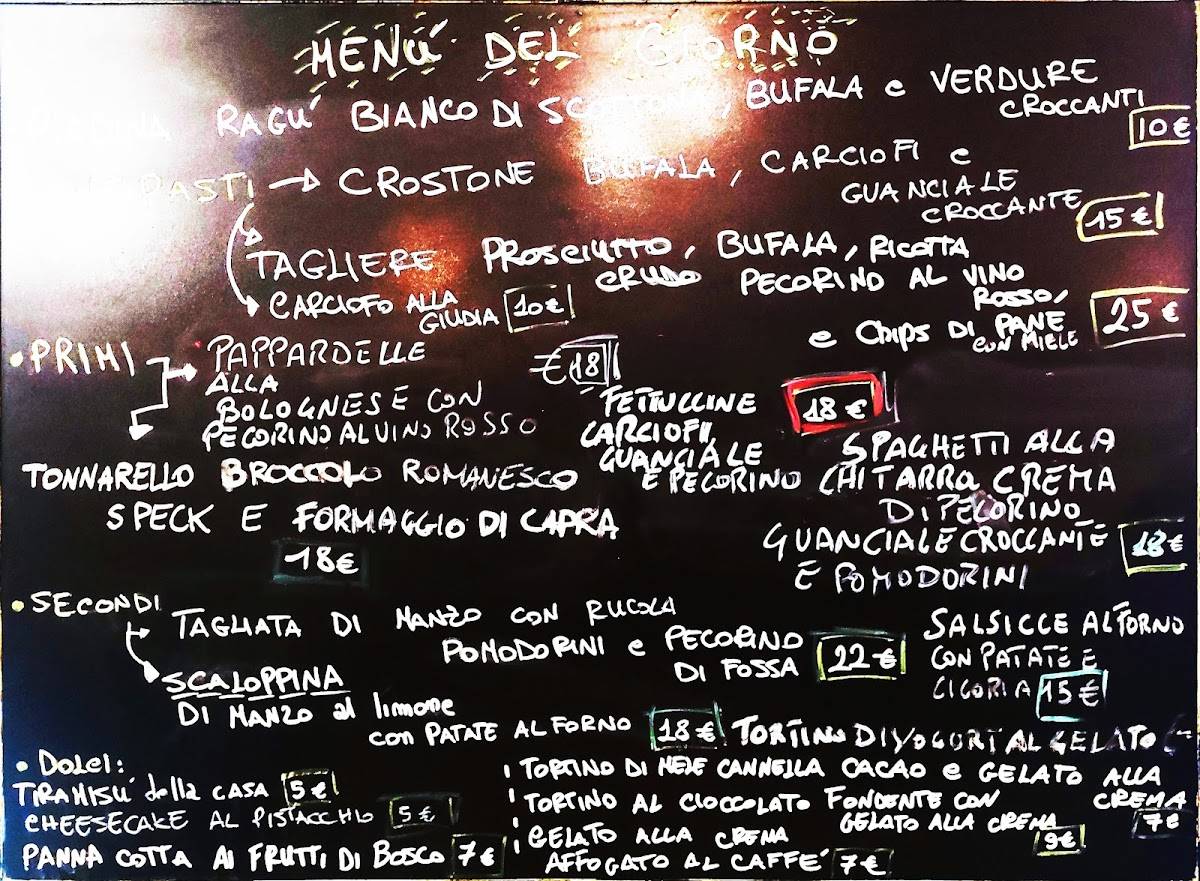 MENU' DEL GIORNO
RAGU' BIANCO DI , BUFALA e VERDURE
CROCCANTI
10€
→ CROSTONE BUFALA, CARCIOFI e
GUANCIALE
CROCCANTE
15€
TAGLIERE PROSCIUTTO, BUFALA, RICOTTA
CRUDO PECORINO AL VINO
ROSSO,
e CHIPS DI PANE
CON MIELE
25€
CARCIOFO ALLA
GIUDIA 10€
• PRIMI → PAPPARDELLE
ALLA
BOLOGNESE CON
PECORINO AL VINO ROSSO
€18
FETTUCCINE
CARCIOFI,
GUANCIALE
E PECORINO
18€
TONNARELLO BROCCOLO ROMANESCO
SPECK E FORMAGGIO DI CAPRA
18€
SPAGHETTI ALLA
CHITARRA CREMA
DI PECORINO
GUANCIALE CROCCANTE
E POMODORINI
18€
• SECONDI
TAGLIATA DI MANZO CON RUCOLA
POMODORINI e PECORINO
DI FOSSA
22€
SALSICCE AL FORNO
CON PATATE E
CICORIA 15€
SCALOPPINA
DI MANZO al limone
con PATATE AL FORNO 18€
• DOLCI:
TIRAMISU' della CASA 5€
CHEESECAKE AL PISTACCHIO 5€
PANNA COTTA AI FRUTTI DI BOSCO 7€
TORTINO DI YOGURT AL GELATO
TORTINO DI MELE CANNELLA CACAO e GELATO ALLA
CREMA
7€
TORTINO AL CIOCCOLATO FONDENTE CON
GELATO ALLA CREMA
9€
GELATO ALLA CREMA
AFFOGATO AL CAFFE' 7€